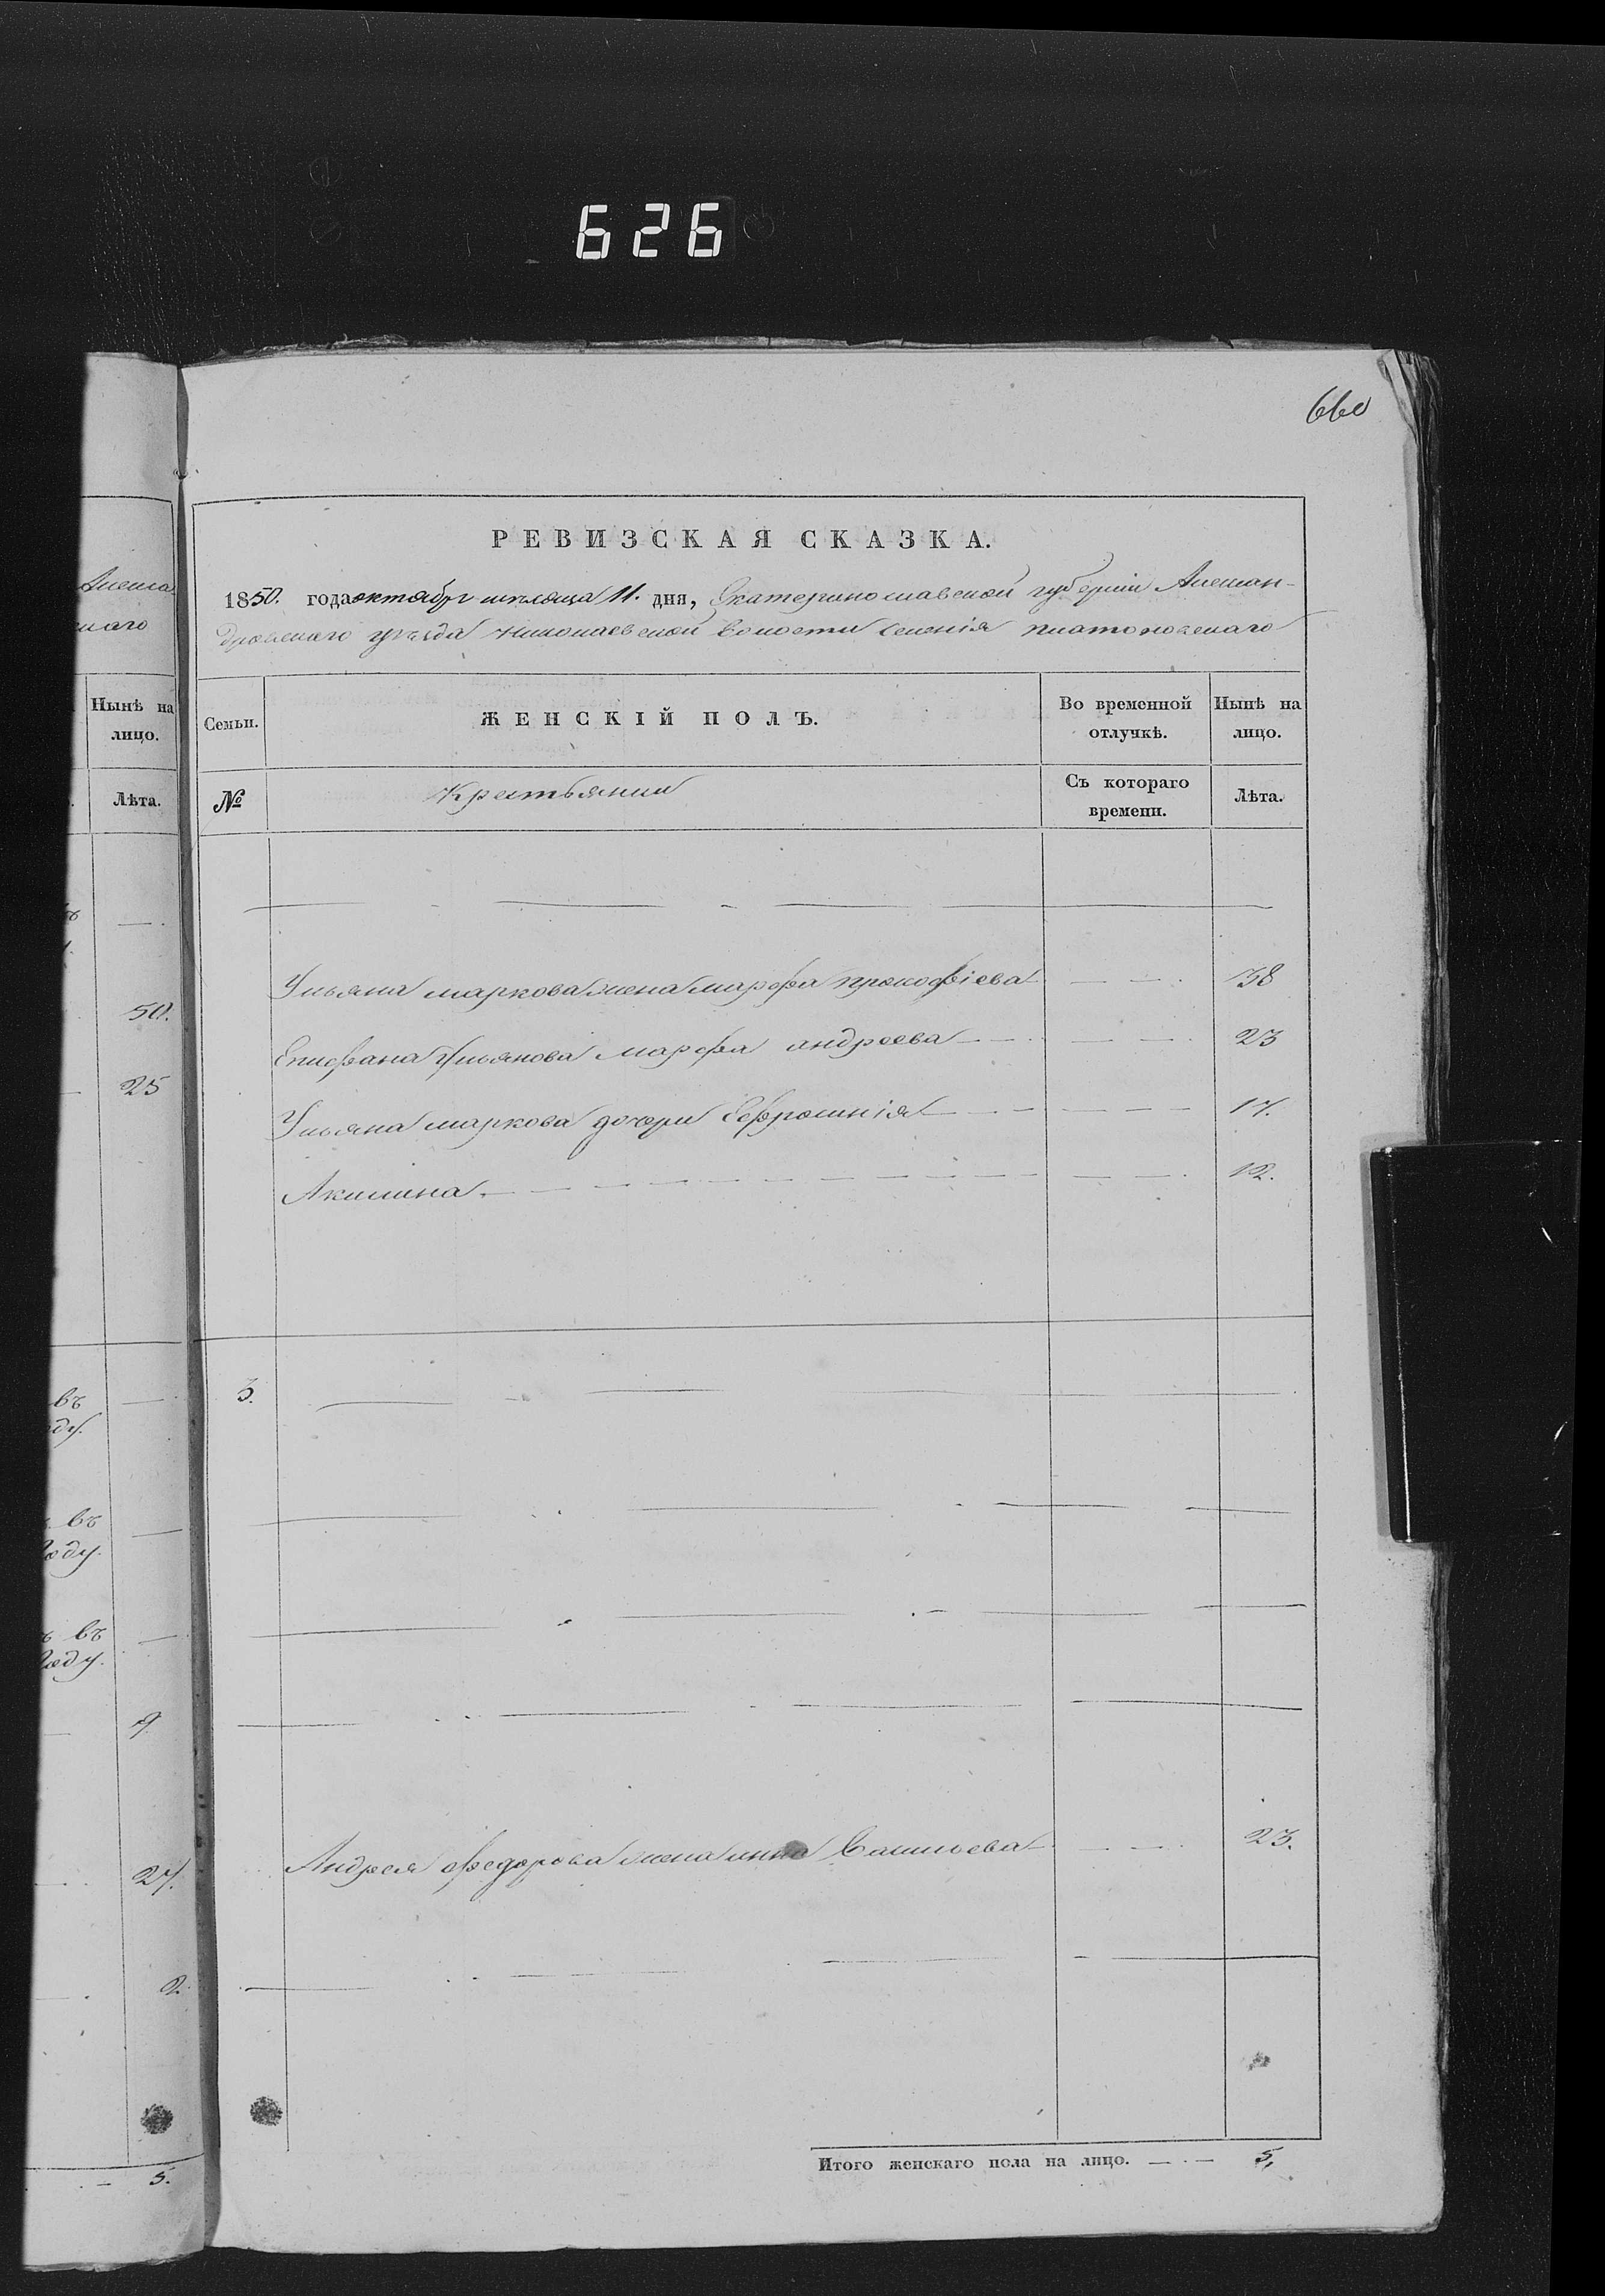 626
660
РЕВИЗСКАЯ СКАЗКА.
1850. года октября мѣсяца 11. дня, Екатеринославской губерніи Алексан-
дровскаго уѣзда Николаевской волости селенія Платоновскаго
Нынѣ на
лицо.
Лѣта.
Семьи.
ЖЕНСКІЙ ПОЛЪ.
Во временной
отлучкѣ.
Нынѣ на
лицо.
№
Съ котораго
времени.
Лѣта.
50.
25
Ульяна Маркова жена Марфа Прокофіева 38
Епифана Ульянова Марфа Андреева 23
Ульяна Маркова дочери Ефросинія 17.
Акилина 12.
въ
3.
въ
оду.
въ
оду.
9
27.
Андрея Федорова жена Анна Савильева 23.
2.
5.
Итого женскаго пола на лицо. 5,